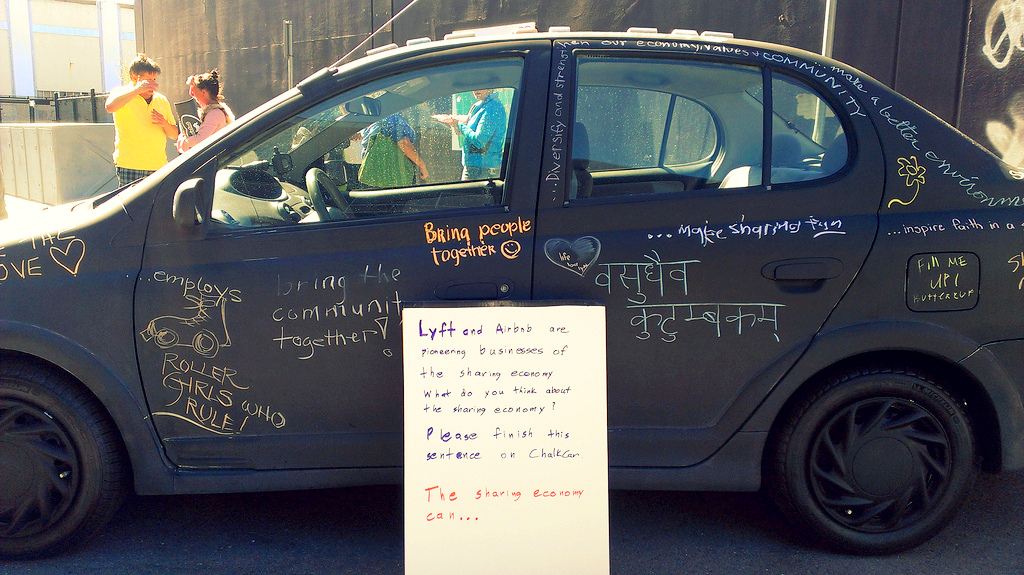 ...Diversify and strengthen our economy, values & COMMUNITY
...make a better environme
THE
OVE
Bring people
together
life
...make sharing fun
...inspire faith in a
FILL ME
UP!
BUTTERCUP
...employs
ROLLER
GIRLS WHO
RULE!
bring the
communit
together!
वसुधैव
कुटुम्बकम्
Lyft and Airbnb are
pioneering businesses of
the sharing economy
What do you think about
the sharing economy?
Please finish this
sentence on ChalkCar
The sharing economy
can...